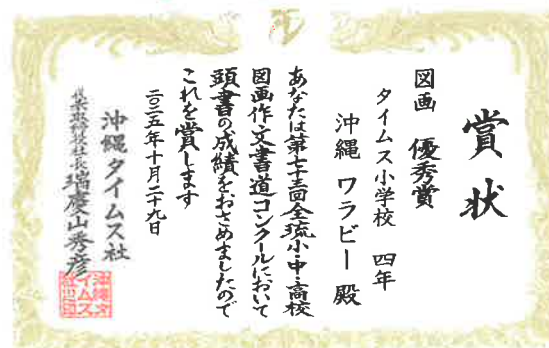 賞状
図画 優秀賞
タイムス小学校 四年
沖縄 ワラビー 殿
あなたは第七十三回全琉小・中・高校
図画・作文・書道コンクールにおいて
頭書の成績をおさめましたので
これを賞します
二〇二五年十月二十九日
沖縄タイムス社
代表取締役社長 瑞慶山秀彦